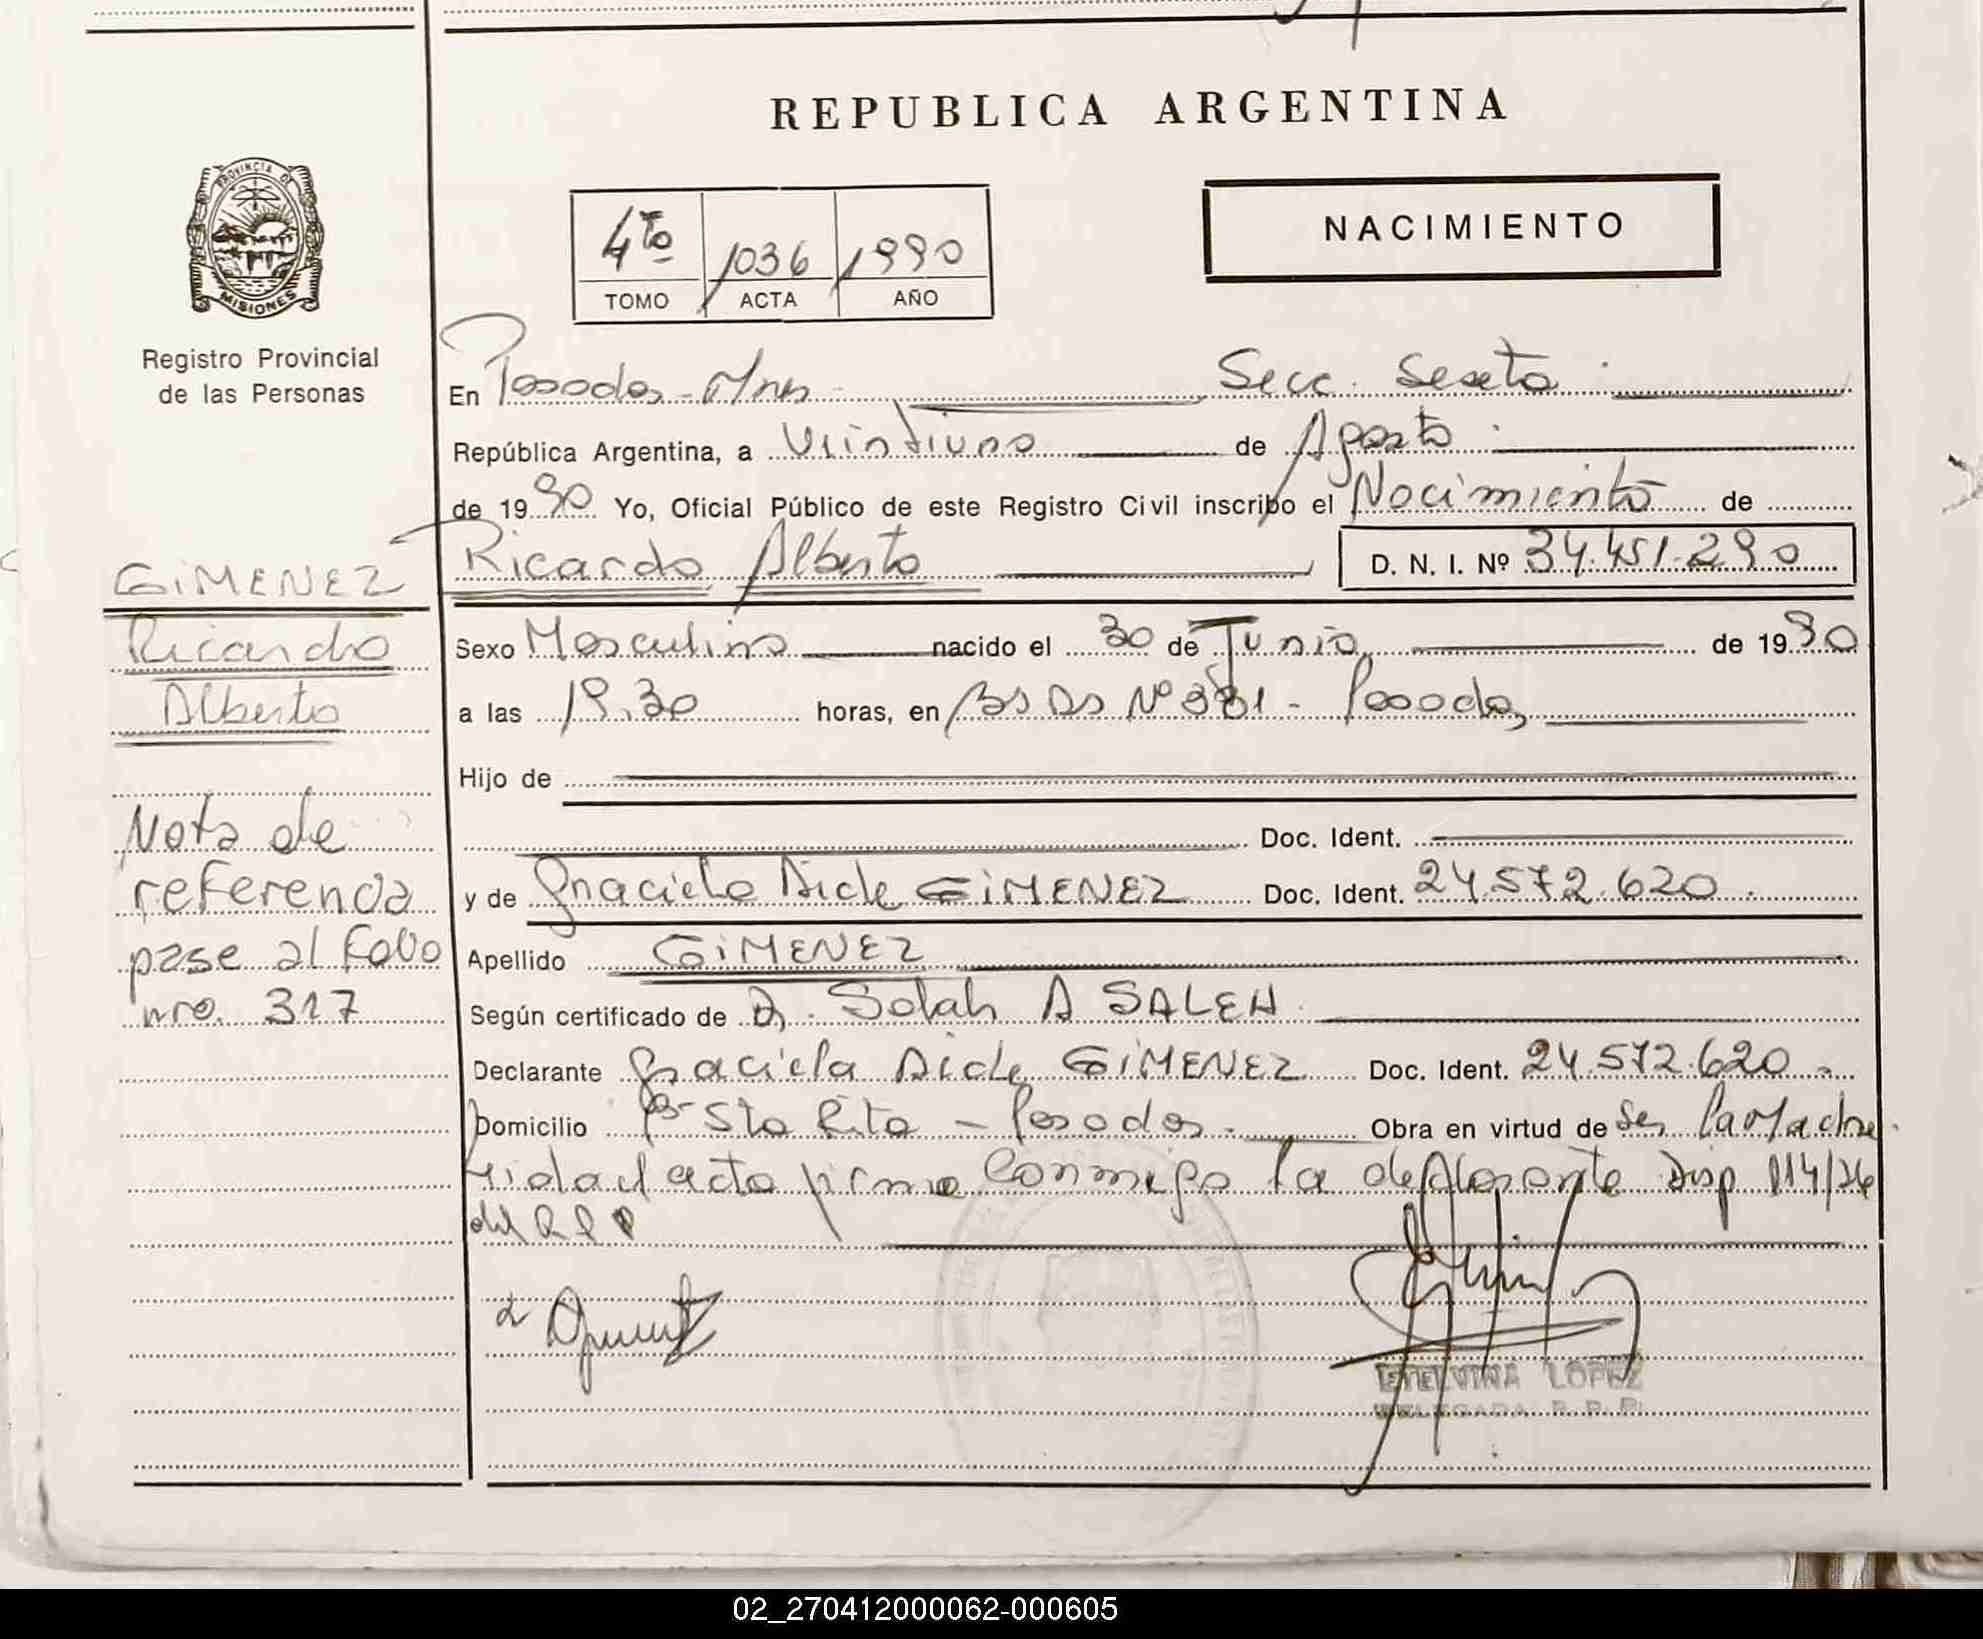 REPUBLICA ARGENTINA
PROVINCIA DE
MISIONES
Registro Provincial
de las Personas
4to 1036 1990
TOMO ACTA AÑO
NACIMIENTO
En Posadas - Mnes Secc. Sexta
República Argentina, a Veintiuno de Agosto
de 1990 Yo, Oficial Público de este Registro Civil inscribo el Nacimiento de
Ricardo Alberto D. N. I. Nº 34.451.290
GIMENEZ
Ricardo
Alberto
Sexo Masculino nacido el 30 de Junio de 1990
a las 19.30 horas, en Bs As Nº 381 - Posadas
Hijo de
Doc. Ident.
y de Graciela Aide GIMENEZ Doc. Ident. 24.572.620
Apellido GIMENEZ
Según certificado de Dr. Salah A SALEH
Declarante Graciela Aide GIMENEZ Doc. Ident. 24.572.620
Domicilio Bº Sta Rita - Posadas - Obra en virtud de Ser La Madre
Leida el acta firma conmigo la declarante Disp 114/76
del R P P
Nota de
referencia
pase al Folio
nro. 317
ETELVINA LOPEZ
DELEGADA R. P. P.
02_270412000062-000605